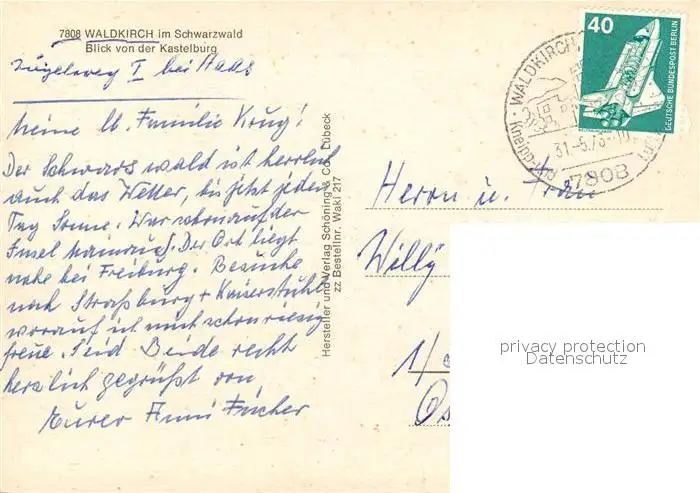 7808 WALDKIRCH im Schwarzwald
Blick von der Kastelburg
I bei Haas
Meine lb. Familie Krug!
Der Schwarzwald ist herrlich
auch das Wetter, bis jetzt jeden
Tag Sonne. War schon auf der
Insel Mainau. Der Ort liegt
nahe bei Freiburg. Besuche
noch Straßburg + Kaiserstuhl
worauf ich mich schon riesig
freue. Seid Beide recht
herzlich gegrüßt von
Eurer Anni Fischer
Hersteller und Verlag Schöning & Co., Lübeck
zz Bestellnr. Waki 217
40
DEUTSCHE BUNDESPOST BERLIN
WALDKIRCH
Kneipp-
31.-5.76-
7808
Herrn u. Frau
Willy
1/
Os
privacy protection
Datenschutz